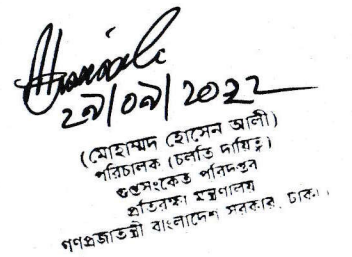 ২৯/০৯/2022
(মোহাম্মদ হোসেন আলী)
পরিচালক (চলতি দায়িত্ব)
গুপ্তসংকেত পরিদপ্তর
প্রতিরক্ষা মন্ত্রণালয়
গণপ্রজাতন্ত্রী বাংলাদেশ সরকার, ঢাকা।